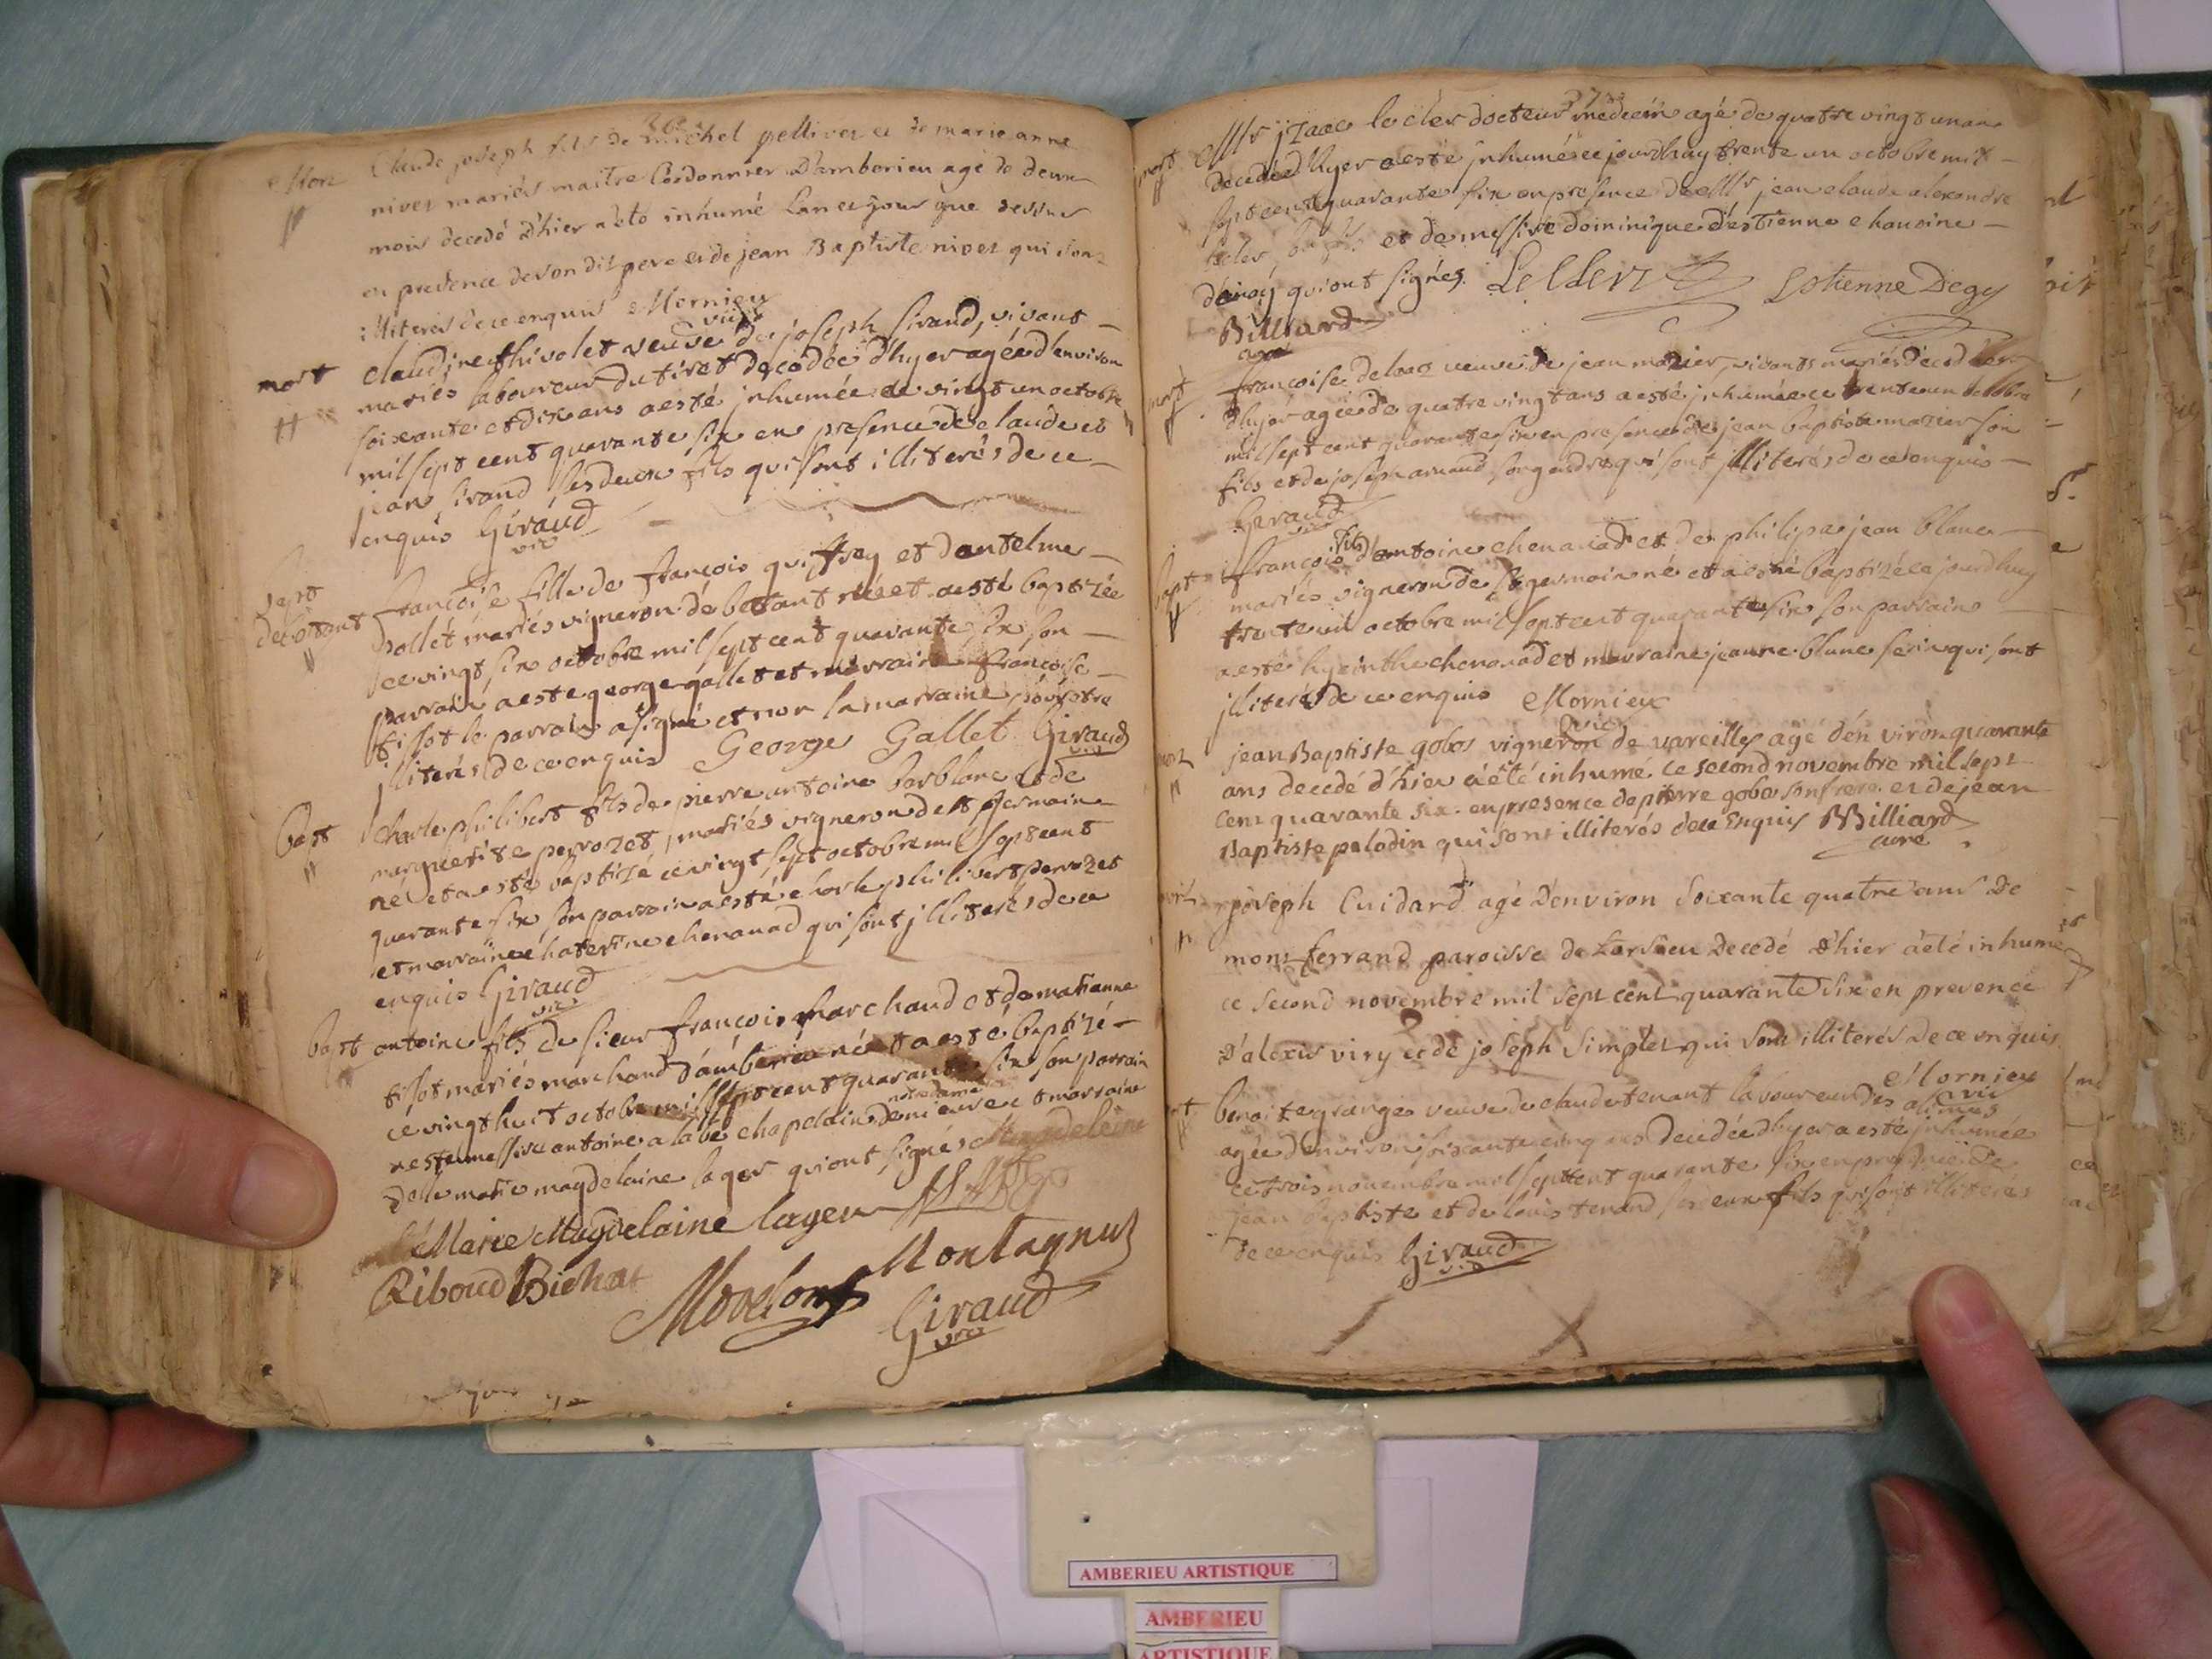 36
Mort
Claude joseph fils de Michel pellivez et de marie anne
nivet mariés maitre Cordonnier D'amberieu agé de deux
mois decedé D'hier a eté inhumé Lan et jour que dessus
en presence de son dit pere et de jean Baptiste nivet qui sont
illiterés de ce enquis Mornieu
vic
mort
claudine thivolet veuve de joseph sirand, vivant
mariés laboureur du tiret decedée d'hyer agée d'environ
soixante et dix ans a esté jnhumée ce vingt un octobre
mil sept cent quarante six en presence de claude et
jean sirand ses deux fils qui sont illiterés de ce
enquis Giraud
vic
bapt
de bettant
francoise fille de francois quiffrey et dantelme
pollet mariés vigneron de betant née et a esté baptizée
ce vingt six octobre mil sept cent quarante six son
parrain a esté george gallet et marraine francoise
tissot le parrain a signé et non la marraine pour etre
jlliterés de ce enquis George Gallet Giraud
vic
bapt
charle philibert fils de pierre antoine barblanc et de
marguerite perrozet, mariés vigneron de st germain
né et a esté baptizé ce vingt sept octobre mil sept cent
quarante six son parrain a esté charle philibert perrozet
et marraine chaterine chenavad qui sont jlliterés de ce
enquis Giraud
vic
bapt
antoine fils de sieur francois marchand et de marianne
tissot mariés marchand d'amberieu né et a esté baptizé
ce vingt huit octobre mil sept cent quarante six son parrain
a esté messire antoine alabe chapelain de notre dame et marraine
delle marie magdelaine lager qui ont signés Magdelaine
Marie Magdelaine lager
Riboud Bichat Montagnus
Giraud
vic
37
mort
Mr jzaac le cler docteur medecin agé de quatre vingt un an
decedé d'hyer a esté jnhumé ce jourdhuy trente un octobre mil
sept cent quarante six en presence de Mr jean claude alexandre
lecler et de messire dominique d'estienne chanoine
qui ont signés LeClerc Estienne Degy
Billiard
curé
mort
francoise delaoz veuve de jean mozier, vivants mariés decedée
dhyer agée de quatre vingt ans a esté jnhumée ce trente un octobre
mil sept cent quarante six en presence de jean baptiste mozier son
fils et de joseph arnaud son gendre qui sont jlliterés de ce enquis
Giraud
vic
bapt
francois fils d'antoine chenavad et de philipa jean blanc
mariés vigneron de st germain né et a esté baptizé ce jourdhuy
trente un octobre mil sept cent quarante six son parrain
a esté hyacinthe chenavad et marraine jeanne blanc serin qui sont
jlliterés de ce enquis Mornieu
vic
mort
jean Baptiste gobos vigneron de vareilles agé d'environ quarante
ans decedé d'hier a eté inhumé ce second novembre mil sept
cent quarante six en presence de pierre gobos son frere et de jean
Baptiste paladin qui sont illiterés de ce Enquis Billiard
curé
mort
joseph Cuidard agé d'environ soixante quatre ans De
mont ferrand paroisse de Lagnieu decedé d'hier a eté inhumé
ce second novembre mil sept cent quarante six en presence
D'alexis viry et de joseph Simplet qui sont illiterés de ce enquis
Mornieu
vic
mort
benoite granges veuve de claude tenant laboureur des alimes
agée d'environ soixante cinq ans decedée dhyer a esté jnhumée
ce trois novembre mil sept cent quarante six en presence de
jean baptiste et de louis tenand ses deux fils qui sont illiterés
de ce enquis Giraud
vic
AMBERIEU ARTISTIQUE
AMBERIEU
ARTISTIQUE